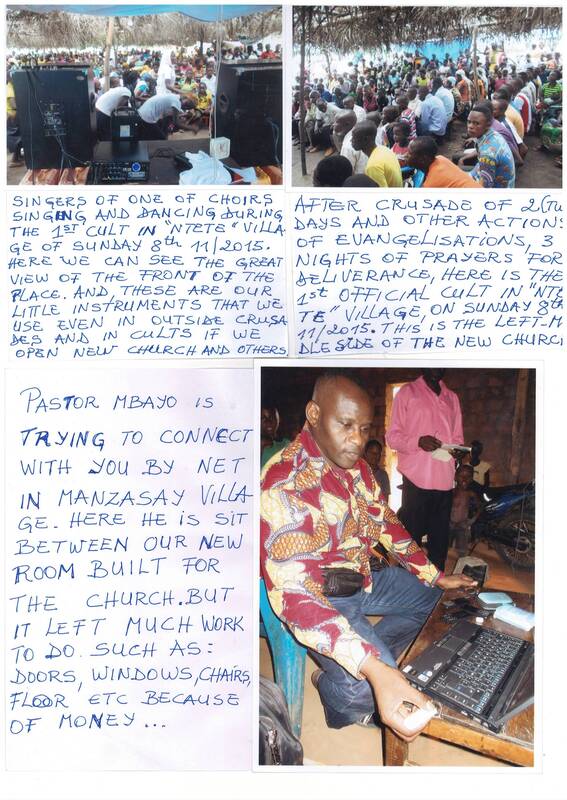 SINGERS OF ONE OF CHOIRS
SINGING AND DANCING DURING
THE 1ST CULT IN "NTETE" VILLA
GE OF SUNDAY 8th 11/2015.
HERE WE CAN SEE THE GREAT
VIEW OF THE FRONT OF THE
PLACE. AND, THESE ARE OUR
LITTLE INSTRUMENTS THAT WE
USE EVEN IN OUTSIDE CRUSA
DES AND IN CULTS IF WE
OPEN NEW CHURCH AND OTHERS.
AFTER CRUSADE OF 2
DAYS AND OTHER ACTIONS
OF EVANGELISATIONS, 3
NIGHTS OF PRAYERS FOR
DELIVERANCE, HERE IS THE
1st OFFICIAL CULT IN "NTE
TE" VILLAGE, ON SUNDAY 8th
11/2015. THIS IS THE LEFT-M
DLE SIDE OF THE NEW CHURCH
PASTOR MBAYO IS
TRYING TO CONNECT
WITH YOU BY NET
IN MANZASAY VILLA-
GE. HERE HE IS SIT
BETWEEN OUR NEW
ROOM BUILT FOR
THE CHURCH. BUT
IT LEFT MUCH WORK
TO DO. SUCH AS:
DOORS, WINDOWS, CHAIRS,
FLOOR ETC BECAUSE
OF MONEY...